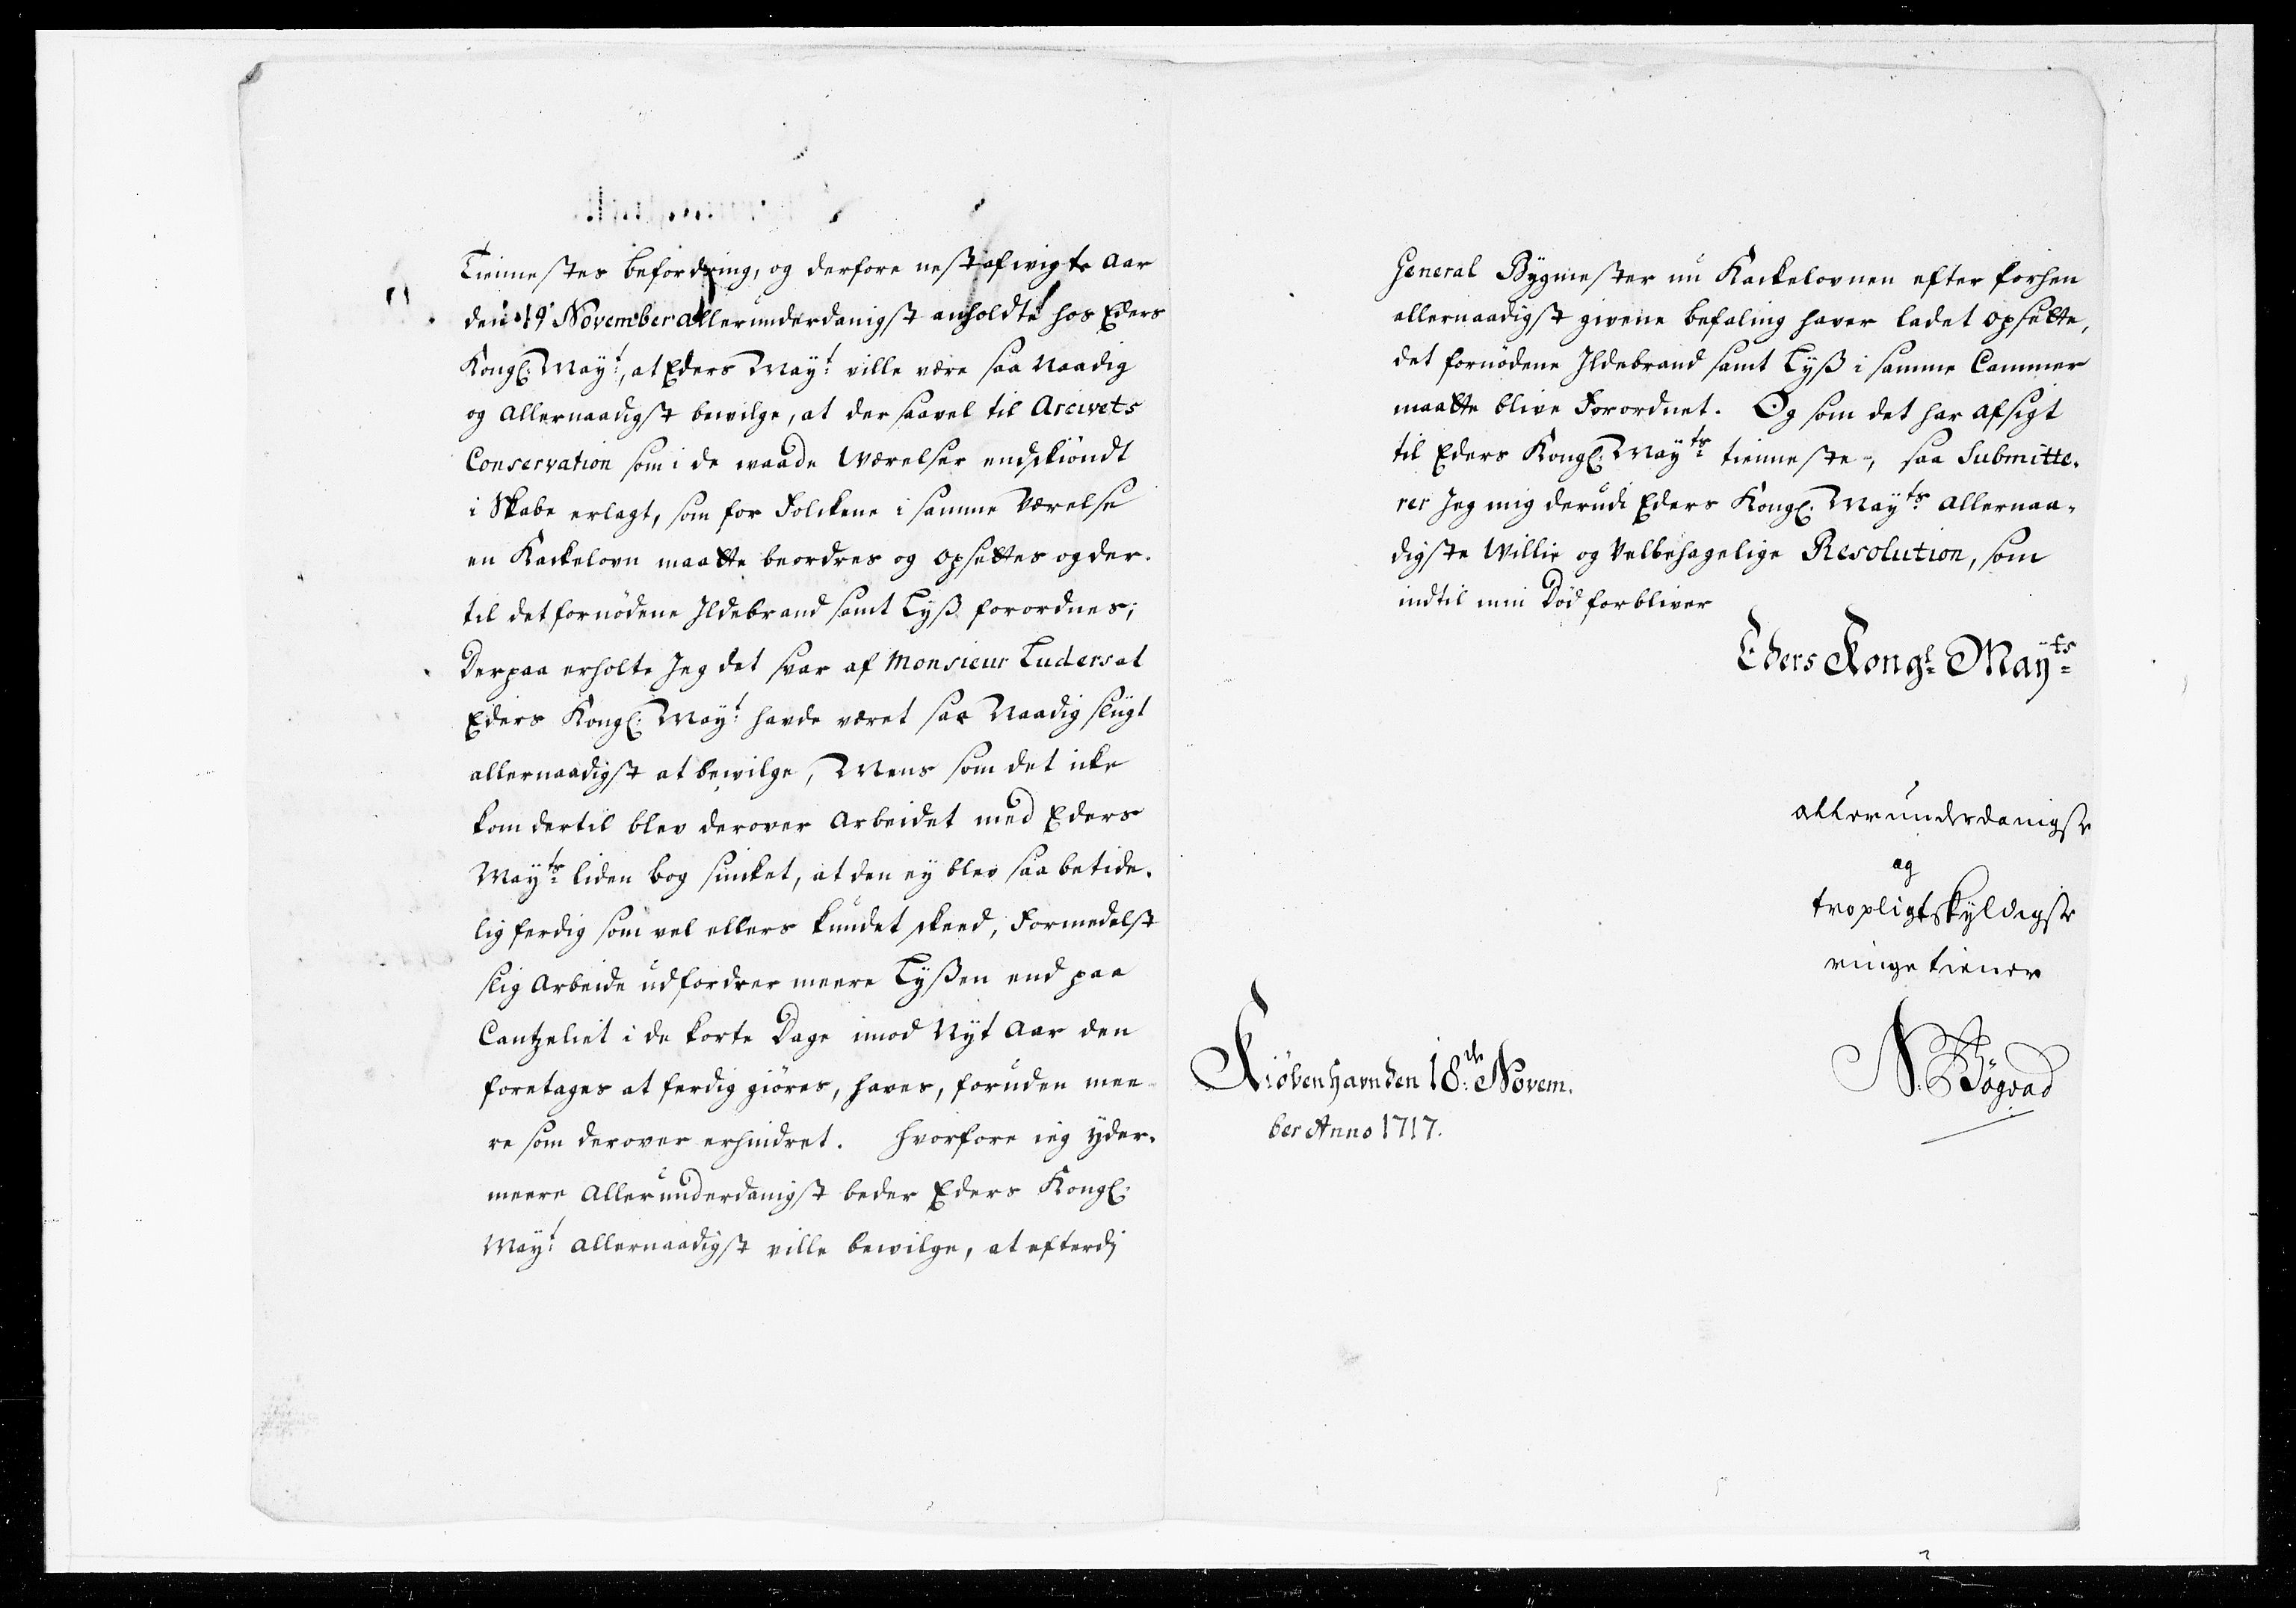 Tiennestes befordring, og derfore nestafvigte Aar
den 19 November allerunderdanigst anholdte hos Eders
Kongl: Mayt:, at Eders Mayt: ville være saa Naadig
og Allernaadigst bevilge, at der saavel til Arcivets
Conservation som i de waade Wærelser endskiöndt
i Skabe erlagt, som for Folckene i samme Værelse
en Kackelovn maatte beordres og opsettes og der-
til det fornödene Ildebrand samt Lyß forordnes;
Derpaa erholte Jeg det svar af Monsieur Luders at
Eders Kongl: Mayt: havde været saa Naadig sligt
allernaadigst at bewilge, Mens som det icke
kom dertil blev derover Arbeidet med Eders
Mayts: liden bog sincket, at den ey blev saa betide-
lig ferdig som vel ellers kundet skeed, Formedelst
slig Arbeide udfordrer meere Lyßen end paa
Cantzeliet i de korte Dage imod Nyt Aar den
foretages at ferdig giöres, haves, foruden mee-
re som derover erhindret. Hvorfore ieg yder-
meere Allerunderdanigst beder Eders Kongl:
Mayt: Allernaadigst ville bewilge, at efterdj
General Bygmester nu Kackelovnen efter forhen
allernaadigst givene befaling haver ladet opsette,
det fornödene Ildebrand samt Lyß i samme Cammer
maatte blive Forordnet. Og som det har afsigt
til Eders Kongl: Mayts: tienneste, saa Submitte-
rer Jeg mig derudi Eders Kongl: Mayts: Allernaa-
digste Willie og Velbehagelige Resolution, som
indtil min Död forbliver
Eders Kongl: Mayts:
allerunderdanigste
og
tropligtskyldigste
ringe tiener
Kiöbenhavn den 18de: Novem-
ber Anno 1717.
N. Bögvad